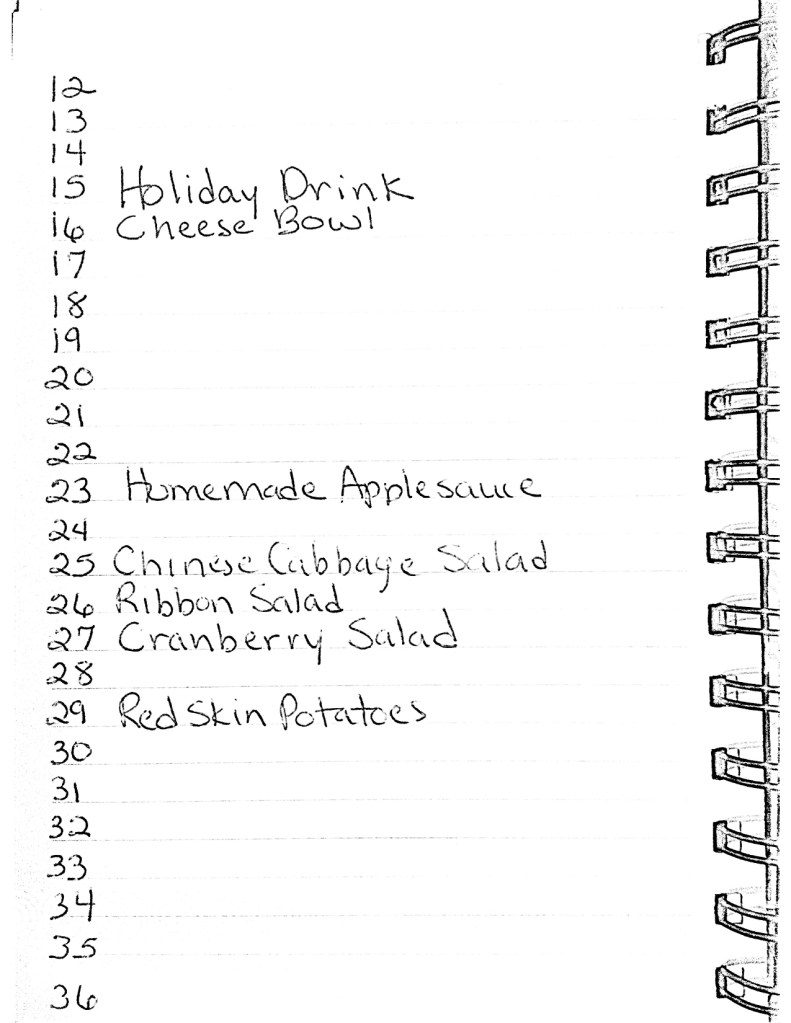 12
13
14
15 Holiday Drink
16 Cheese Bowl
17
18
19
20
21
22
23 Homemade Applesauce
24
25 Chinese Cabbage Salad
26 Ribbon Salad
27 Cranberry Salad
28
29 Red Skin Potatoes
30
31
32
33
34
35
36